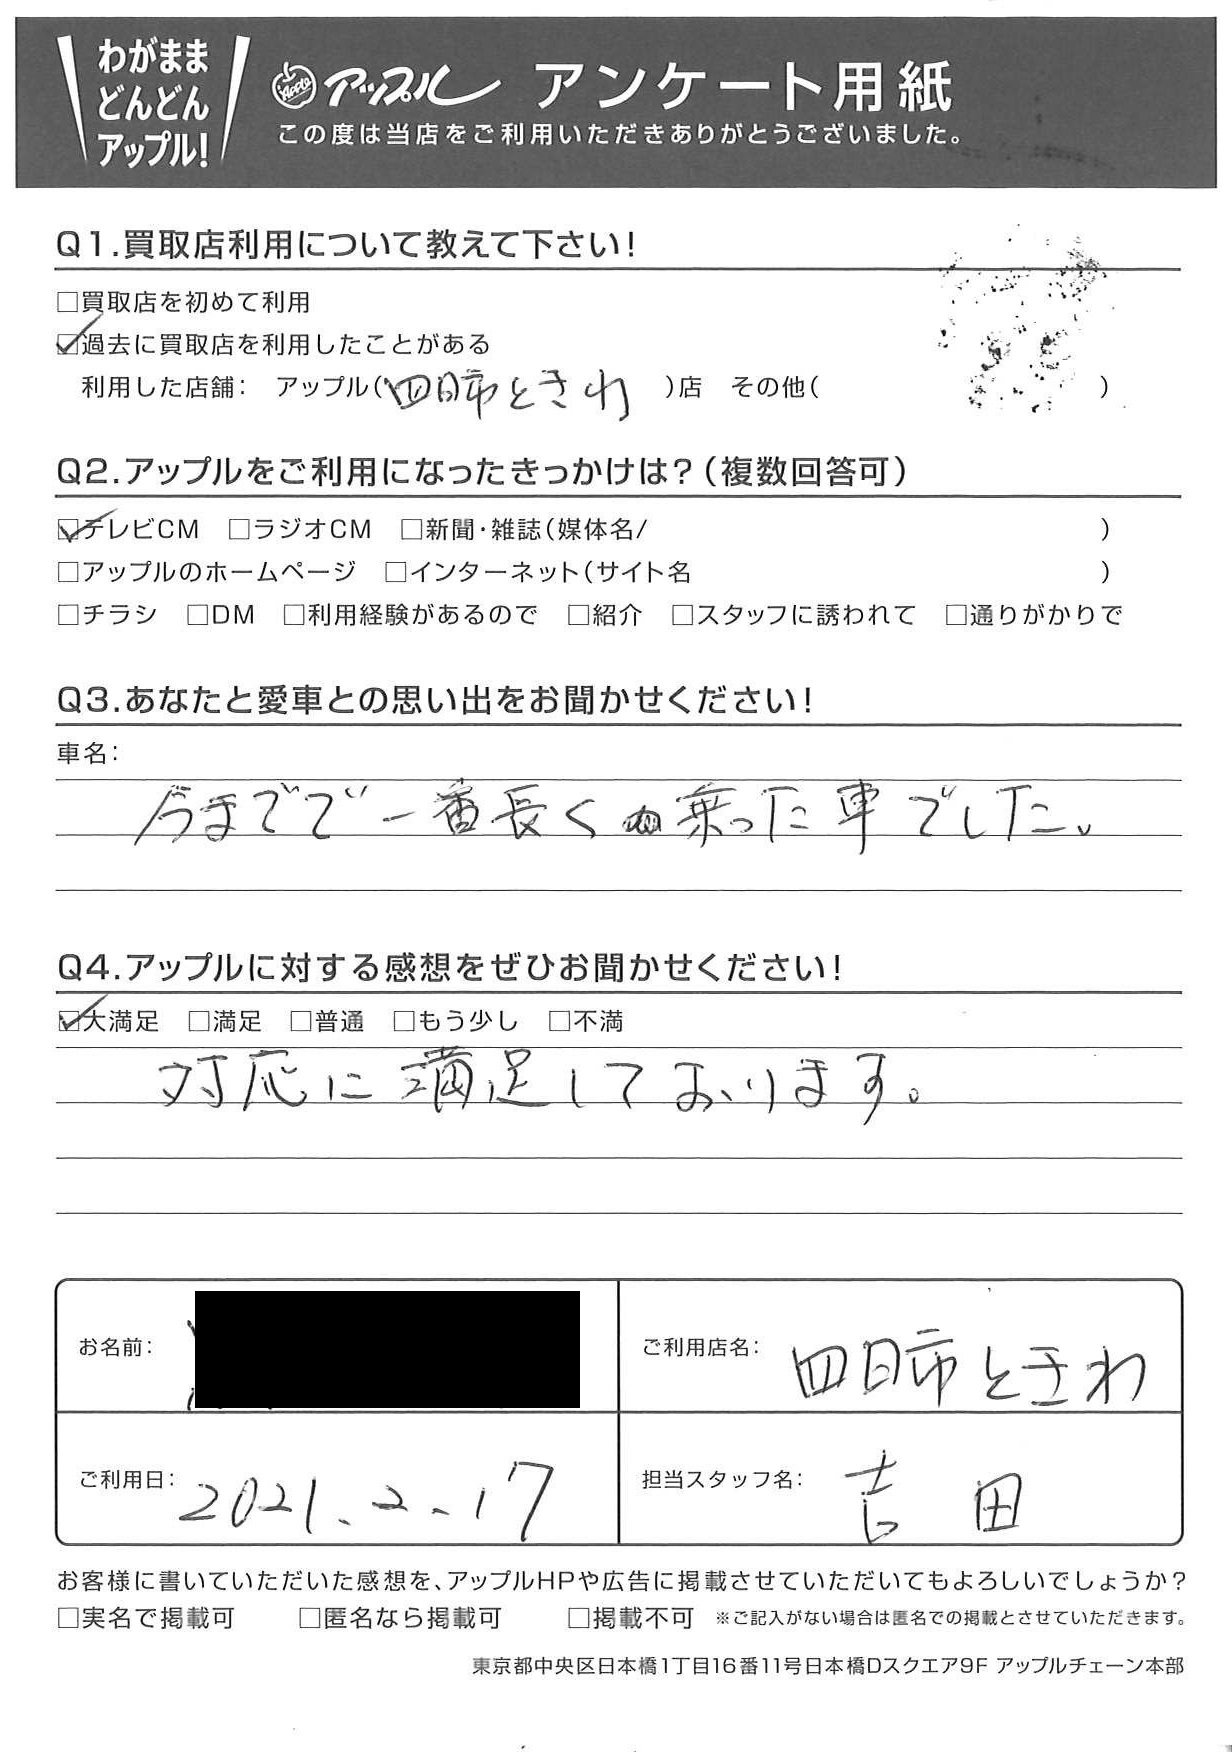 わがまま
どんどん
アップル!
Apple アップル アンケート用紙
この度は当店をご利用いただきありがとうございました。
Q1.買取店利用について教えて下さい!
□買取店を初めて利用
☑過去に買取店を利用したことがある
利用した店舗: アップル(四日市ときわ)店 その他( )
Q2.アップルをご利用になったきっかけは?(複数回答可)
☑テレビCM □ラジオCM □新聞・雑誌(媒体名/ )
□アップルのホームページ □インターネット(サイト名 )
□チラシ □DM □利用経験があるので □紹介 □スタッフに誘われて □通りがかりで
Q3.あなたと愛車との思い出をお聞かせください!
車名:
今までで一番長く乗った車でした。
Q4.アップルに対する感想をぜひお聞かせください!
☑大満足 □満足 □普通 □もう少し □不満
対応に満足しております。
お名前:
ご利用店名: 四日市ときわ
ご利用日: 2021.2.17
担当スタッフ名: 吉田
お客様に書いていただいた感想を、アップルHPや広告に掲載させていただいてもよろしいでしょうか?
□実名で掲載可 □匿名なら掲載可 □掲載不可 ※ご記入がない場合は匿名での掲載とさせていただきます。
東京都中央区日本橋1丁目16番11号日本橋Dスクエア9F アップルチェーン本部